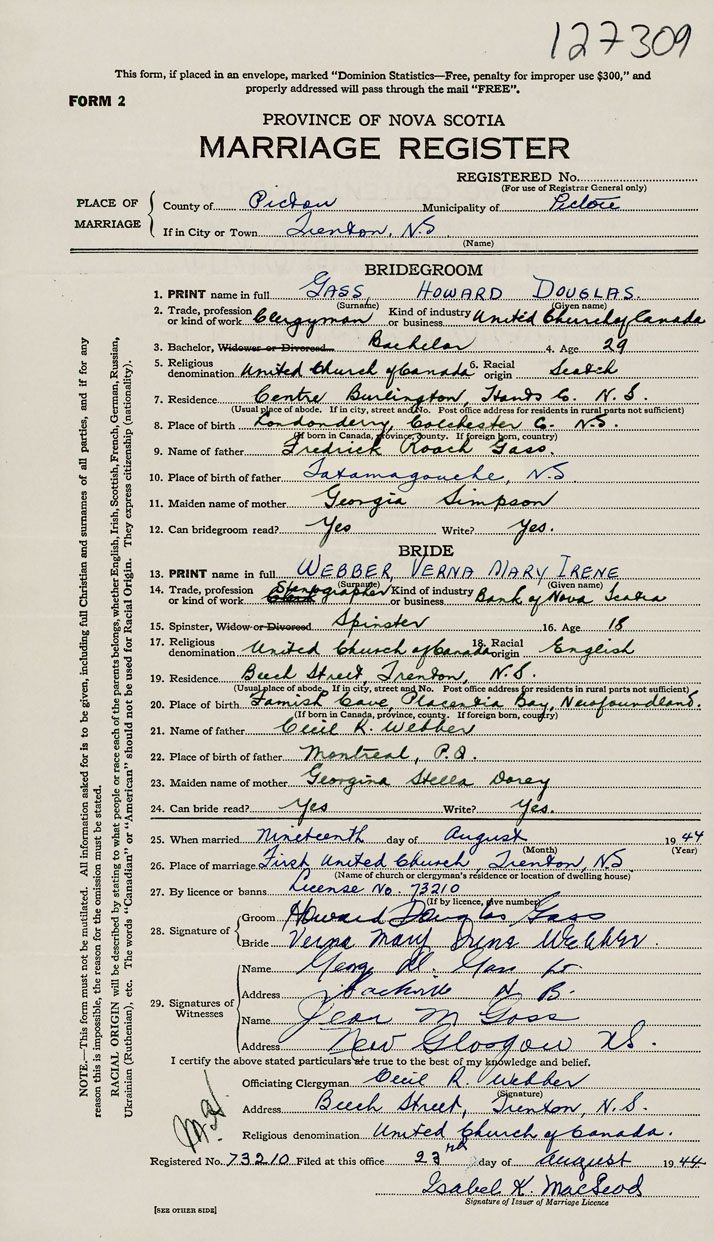 127309
This form, if placed in an envelope, marked "Dominion Statistics—Free, penalty for improper use $300," and
properly addressed will pass through the mail "FREE".
FORM 2
PROVINCE OF NOVA SCOTIA
MARRIAGE REGISTER
REGISTERED No.
(For use of Registrar General only)
PLACE OF MARRIAGE
County of Pictou Municipality of Pictou
If in City or Town Trenton, N.S.
(Name)
BRIDEGROOM
1. PRINT name in full GASS, HOWARD DOUGLAS.
(Surname) (Given name)
2. Trade, profession or kind of work Clergyman Kind of industry or business United Church of Canada
3. Bachelor, Widower or Divorced Bachelor 4. Age 29
5. Religious denomination United Church of Canada 6. Racial origin Scotch
7. Residence Centre Burlington, Hants Co. N.S.
(Usual place of abode. If in city, street and No. Post office address for residents in rural parts not sufficient)
8. Place of birth Londonderry, Colchester Co. N.S.
(If born in Canada, province, county. If foreign born, country)
9. Name of father Fredrick Roach Gass.
10. Place of birth of father Tatamagouche, N.S
11. Maiden name of mother Georgia Simpson
12. Can bridegroom read? Yes Write? Yes.
BRIDE
13. PRINT name in full WEBBER, VERNA MARY IRENE
(Surname) (Given name)
14. Trade, profession or kind of work Stenographer Kind of industry or business Bank of Nova Scotia
15. Spinster, Widow or Divorced Spinster 16. Age 18
17. Religious denomination United Church of Canada 18. Racial origin English
19. Residence Beech Street, Trenton, N.S.
(Usual place of abode. If in city, street and No. Post office address for residents in rural parts not sufficient)
20. Place of birth Famish Cove, Placentia Bay, Newfoundland.
(If born in Canada, province, county. If foreign born, country)
21. Name of father Cecil R. Webber
22. Place of birth of father Montreal, P.Q.
23. Maiden name of mother Georgina Stella Dorey
24. Can bride read? Yes Write? Yes.
25. When married Nineteenth day of August 1944
(Month) (Year)
26. Place of marriage First United Church, Trenton, N.S
(Name of church or clergyman's residence or location of dwelling house)
27. By licence or banns License No. 73210
(If by licence, give number)
28. Signature of
Groom Howard Douglas Gass
Bride Verna Mary Irene Webber.
29. Signatures of Witnesses
Name Gass
Address Sackville N B.
Name Jean M Gass
Address New Glasgow NS.
I certify the above stated particulars are true to the best of my knowledge and belief.
Officiating Clergyman Cecil R. Webber
(Signature)
Address Beech Street, Trenton, N.S.
Religious denomination United Church of Canada.
Registered No. 73210 Filed at this office 23rd day of August 1944
Isabel K. MacLeod
Signature of Issuer of Marriage Licence
[SEE OTHER SIDE]
NOTE.—This form must not be mutilated. All information asked for is to be given, including full Christian and surnames of all parties, and if for any
reason this is impossible, the reason for the omission must be stated.
RACIAL ORIGIN will be described by stating to what people or race each of the parents belongs, whether English, Irish, Scottish, French, German, Russian,
Ukrainian (Ruthenian), etc. The words "Canadian" or "American" should not be used for Racial Origin. They express citizenship (nationality).